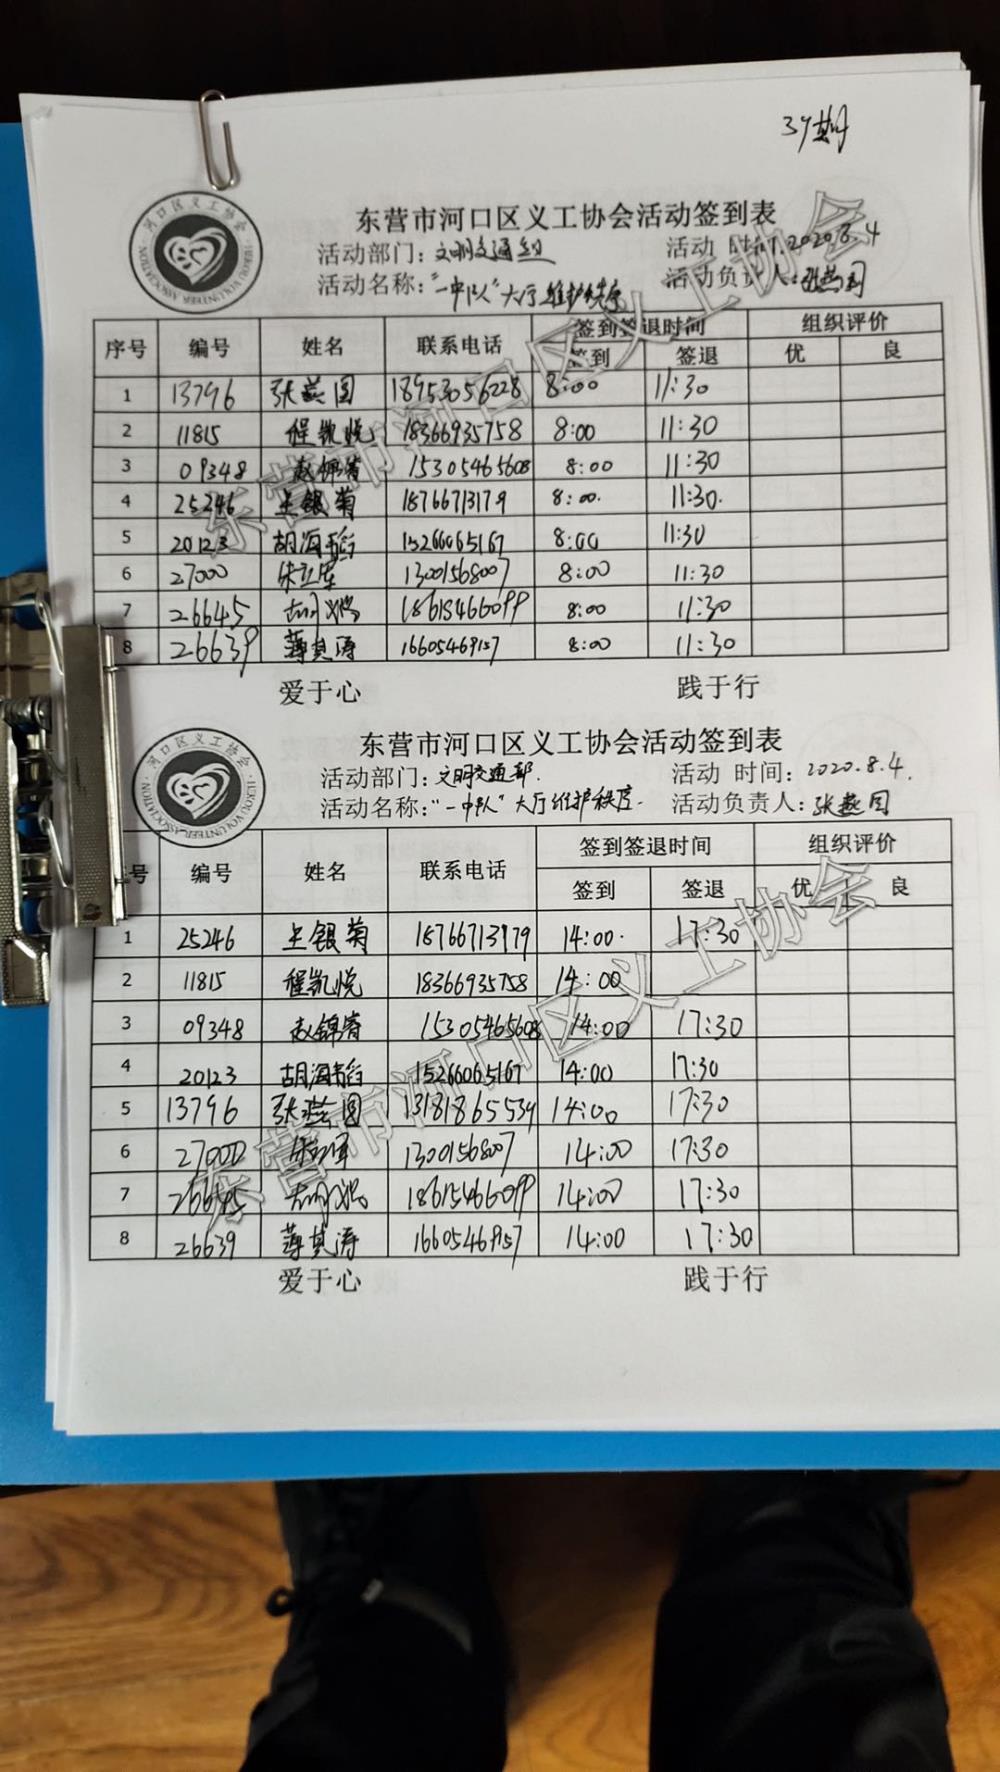 39期
东营市河口区义工协会活动签到表
活动部门：文明交通组 活动 时间：2020.8.4
活动名称：“一中队”大厅维护秩序 活动负责人：张燕园
序号 编号 姓名 联系电话 签到签退时间 组织评价
签到 签退 优 良
1 13796 张燕园 18953056228 8:00 11:30
2 11815 程凯悦 18366935758 8:00 11:30
3 09348 赵锦睿 15305465608 8:00 11:30
4 25246 王银菊 18766713179 8:00. 11:30.
5 20123 胡海韬 15266065167 8:00 11:30
6 27000 13001568007 8:00 11:30
7 26645 18615466099 8:00 11:30
8 26639 薄其涛 16605469157 8:00 11:30
爱于心 践于行
东营市河口区义工协会活动签到表
活动部门：文明交通部. 活动 时间：2020.8.4.
活动名称：“一中队”大厅维护秩序. 活动负责人：张燕园
序号 编号 姓名 联系电话 签到签退时间 组织评价
签到 签退 优 良
1 25246 王银菊 18766713979 14:00. 17:30
2 11815 程凯悦 18366935758 14:00
3 09348 赵锦睿 15305465608 14:00 17:30
4 20123 胡海韬 15266065167 14:00 17:30
5 13796 张燕园 13181865539 14:00 17:30
6 27000 13001568007 14:00 17:30
7 26645 18615466099 14:00 17:30
8 26639 薄其涛 16605469157 14:00 17:30
爱于心 践于行
河口区义工协会
HEKOU VOLUNTEER ASSOCIATION
河口区义工协会
HEKOU VOLUNTEER ASSOCIATION
东营市河口区义工协会
东营市河口区义工协会